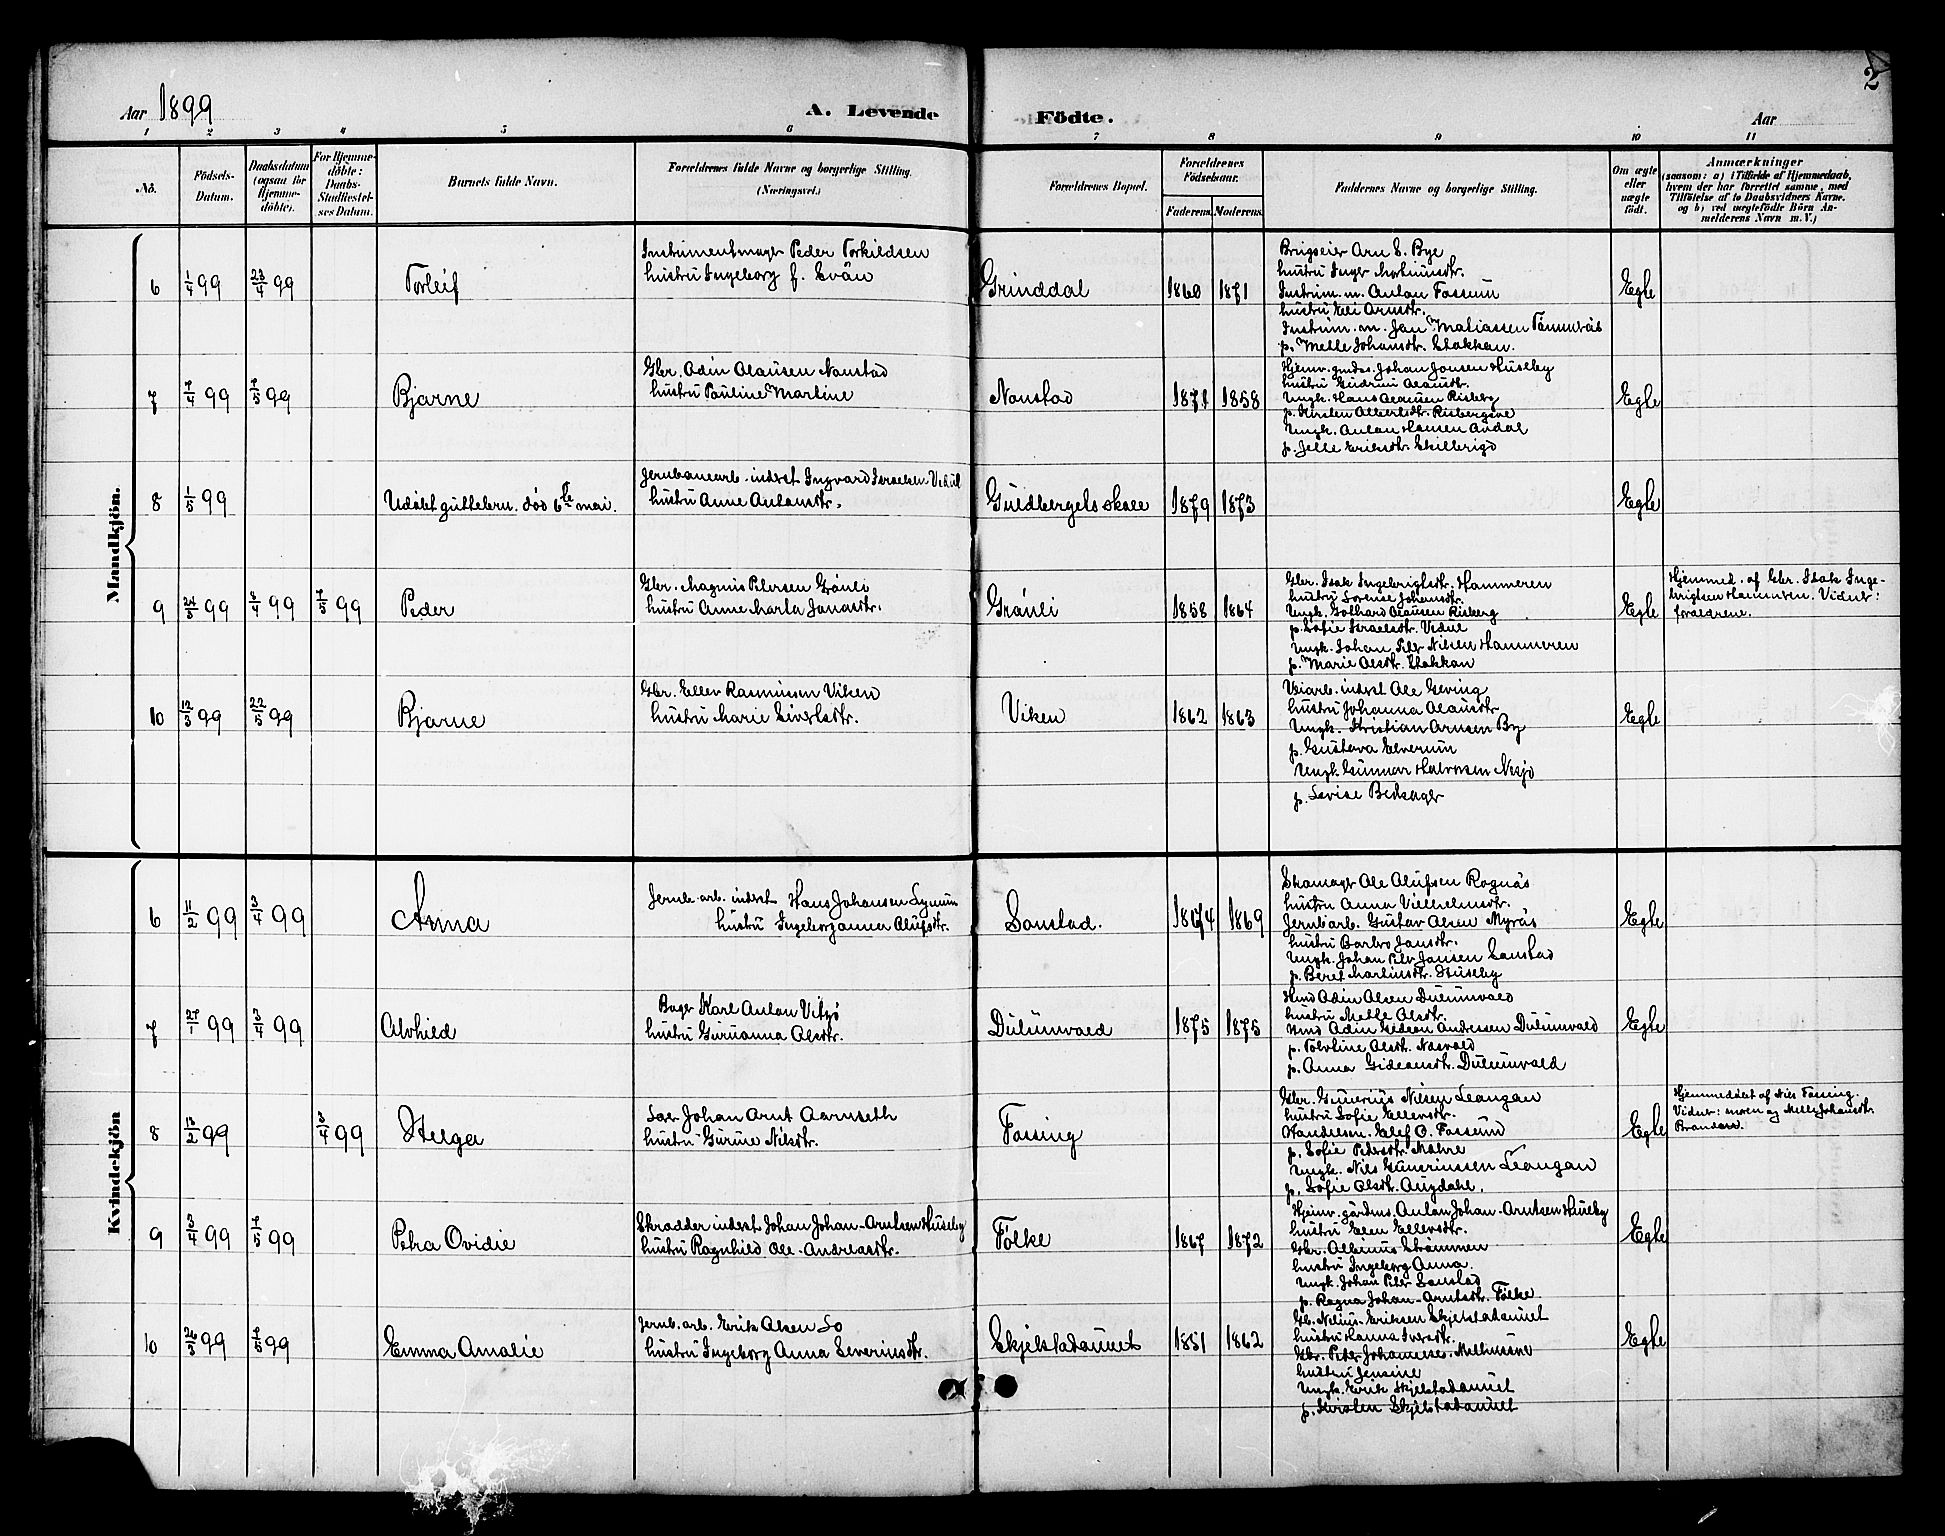 2
Aar 1899
A. Levende Födte.
Aar
1 2 3 4 5 6 7 8 9 10 11
No.
Födsels-Datum.
Daabsdatum (ogsaa for Hjemme-döbte).
For Hjemme-döbte: Daabs-Stadfæstel-ses Datum.
Barnets fulde Navn.
Forældrenes fulde Navne og borgerlige Stilling. (Næringsvei.)
Forældrenes Bopæl.
Forældrenes Födselsaar.
Faderens. Moderens.
Faddernes Navne og borgerlige Stilling.
Om ægte eller uægte födt.
Anmærkninger
(saasom: a) i Tilfælde af Hjemmedaab,
hvem der har forrettet samme, med
Tilföielse af to Daabsvidners Navne.
og b) ved uægtefödte Börn An-
melderens Navn m. V.)
Mandkjön.
6 1/4 99 23/4 99 Torleif
Instrumentmager Peder Torkildsen
hustru Ingeborg f. Evän
Grinddal 1860 1871
Brugseier Arn E. Bye
hustru Inger Mortinusdtr.
Instrum. m. Anton Fossum
hustru Eli Arnsdtr.
Instrum. m. Jon Matiassen Tømmerås
p. Melle Johansdtr. Stokkan.
Egte
7 7/4 99 7/5 99 Bjarne
Gbr. Odin Olausen Nonstad
hustru Pauline Martine
Nonstad 1871 1858
Hjemv. gmds. Johan Jonsen Huseby
hustru Gudrun Olausdtr.
Ungk. Hans Olausen Risberg
p. Kirsten Albertsdtr. Risbergsve
Ungk. Anton Hansen Avdal
p. Jelle Eriksdtr. Skillerigd
Egte
8 1/5 99 Udøbt guttebrn. død 6te mai.
Jernbanearb. inderst Ingvard Israelsen Vedul
hustru Anne Antonsdtr.
Guldbergets skole 1879 1873
Egte
9 24/3 99 3/4 99 7/5 99 Peder
Gbr. Magnus Petersen Grønli
hustru Anne Marta Jonasdtr.
Grønli 1858 1864
Gbr. Isak Ingebrigtsdtr. Hammeren
hustru Lorense Johansdtr.
Ungk. Gothard Olausen Risberg
p. Sofie Israelsdtr. Vedul
Ungk. Johan Peter Nilsen Hammeren
p. Marie Olsdtr. Stokkan
Egte
Hjemmed. af Gbr. Isak Inge-
brigtsen Hammeren. Vidner:
forældrene.
10 12/3 99 22/5 99 Bjarne
Gbr. Ellev Rasmussen Viken
hustru Marie Sivertsdtr.
Viken 1862 1863
Veiarb. inderst Ole Geving
hustru Johanna Olausdtr.
Ungk. Kristian Arnsen By
p. Gustava Elverum
Ungk. Gunnar Halvorsen Nesjø
p. Lovise Bedsager
Egte
Kvindekjön
6 11/2 99 3/4 99 Anna
Jernb. arb. inderst Hans Johansen Lynum
hustru Ingeborganna Olufsdtr.
Sonstad. 1874 1869
Skomager Ole Olufsen Rognås
hustru Anna Vilhelmsdtr.
Jernb arb. Gustav Olsen Myrås
hustru Barbro Jonsdtr.
Ungk. Johan Petr Jonsen Sonstad
p. Beret Martinsdtr. Huseby
Egte
7 27/1 99 3/4 99 Alvhild
Bager Karl Anton Vitsø
hustru Guruanna Olsdtr.
Dulumvald 1875 1875
Hmd Odin Olsen Dulumvald
hustru Melle Olsdtr.
Hmd Odin Gideon Andreasen Dulumvald
p. Tolvline Olsdtr. Nosvald
p. Anna Gideonsdtr. Dulumvald
Egte
8 13/2 99 3/4 99 Helga
Loer Johan Arnt Aarnseth
hustru Gurine Nilsdtr.
Fossing
Gbr. Gunerius Nilsen Leangan
hustru Sofie Ellevsdtr.
Handelsm. Elef O. Fossum
p. Sofie Pedersdtr. Mokre
Ungk. Nils Guneriussen Leangan
p. Sofie Olsdtr. Augdahl.
Egte
Hjemmedøbt af Nils Fossing.
Vidner: moren og Melle Johansdtr.
Brandaas.
9 3/4 99 7/5 99 Petra Ovidie
Skrædder inderst Johan Johan-Arntsen Huseby
hustru Ragnhild Ole-Andreasdtr.
Følke 1867 1872
Hjemv. gårdms. Anton Johan-Arntsen Huseby
hustru Elen Ellevsdtr.
Gbr. Albinus Strømmen
hustru Ingeborg Anna.
Ungk. Johan Peter Sonstad
p. Ragna Johan-Arntsdtr. Følke
Egte
10 26/3 99 7/5 99 Emma Amalie
Jernb. arb. Erik Olsen Lo
hustru Ingeborg Anna Severinsdtr.
Skjelstadaunet 1851 1862
Gb. Nelius Eriksen Skjelstadaunet
hustru Hanna Iversdtr.
Gbr. Peter Johannes. Melhusvé
hustru Jensine
Ungk. Erik Skjelstadaunet
p. Kirsten Skjelstadaunet
Egte